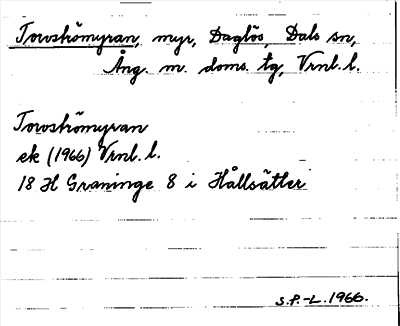 Torvströmyran, myr, Daglös, Dals sn,
Ång. m. doms. tg, Vrnl. l.
Torvströmyran
ek (1966) Vrnl. l.
18 H Graninge 8 i Hållsätter
S.P.-L. 1966.